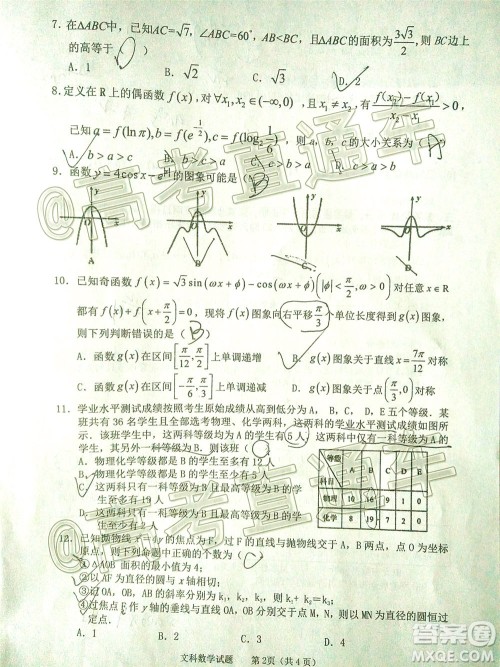 7. 在△ABC中，已知AC=√7，∠ABC=60°，AB<BC，且△ABC的面积为3√3/2，则BC边上
的高等于（ ）
A. 1 B. √2 C. √3 D. 2
8. 定义在R上的偶函数f(x)，对∀x₁,x₂∈(-∞,0)，且x₁≠x₂，有 f(x₂)-f(x₁)/x₂-x₁ >0，
已知a=f(lnπ),b=f(e^(-1/2)),c=f(log₂ 1/6)，则a,b,c的大小关系为（A）
b>a>c B. b>c>a
9. 函数y=4cosx-e^|x|的图象可能是（B）
y y y y
O x O x O x O x
A B C D
10. 已知奇函数f(x)=√3sin(ωx+φ)-cos(ωx+φ)(|φ|<π/2,ω>0)对任意x∈R
都有f(x)+f(x+π/2)=0，现将f(x)图象向右平移π/3个单位长度得到g(x)图象，
则下列判断错误的是（B）
A. 函数g(x)在区间[π/12,π/2]上单调递增 B. g(x)图象关于直线x=7π/12对称
C. 函数g(x)在区间[-π/6,π/3]上单调递减 D. g(x)图象关于点(π/3,0)对称
11. 学业水平测试成绩按照考生原始成绩从高到低分为A、B、C、D、E五个等级. 某
班共有36名学生且全部选考物理、化学两科，这两科的学业水平测试成绩如图所
示. 该班学生中，这两科等级均为A的学生有5人，这两科中仅有一科等级为A的
学生，其另外一科等级为B. 则该班（ ）
A. 物理化学等级都是B的学生至多有12人
B. 物理化学等级都是B的学生至少有5人
C. 这两科只有一科等级为B且最高等级为B的
学生至多有19人
这两科只有一科等级为B且最高等级为B的
学生至少有2人
等级 科目 A B C D E
物理 10 16 9 1 0
化学 8 19 7 2 0
12. 已知抛物线 的焦点为F，过F的直线与抛物线交于A，B两点，点O为坐标
原点，则下列命题中正确的个数为（ ）
①△AOB面积的最小值为4；
②以AF为直径的圆与x轴相切；
A. 1 B. 2 C. 3 D. 4
文科数学试题 第2页（共4页）
@高考直通车
@高考直通车
答案圈
MXQE.COM